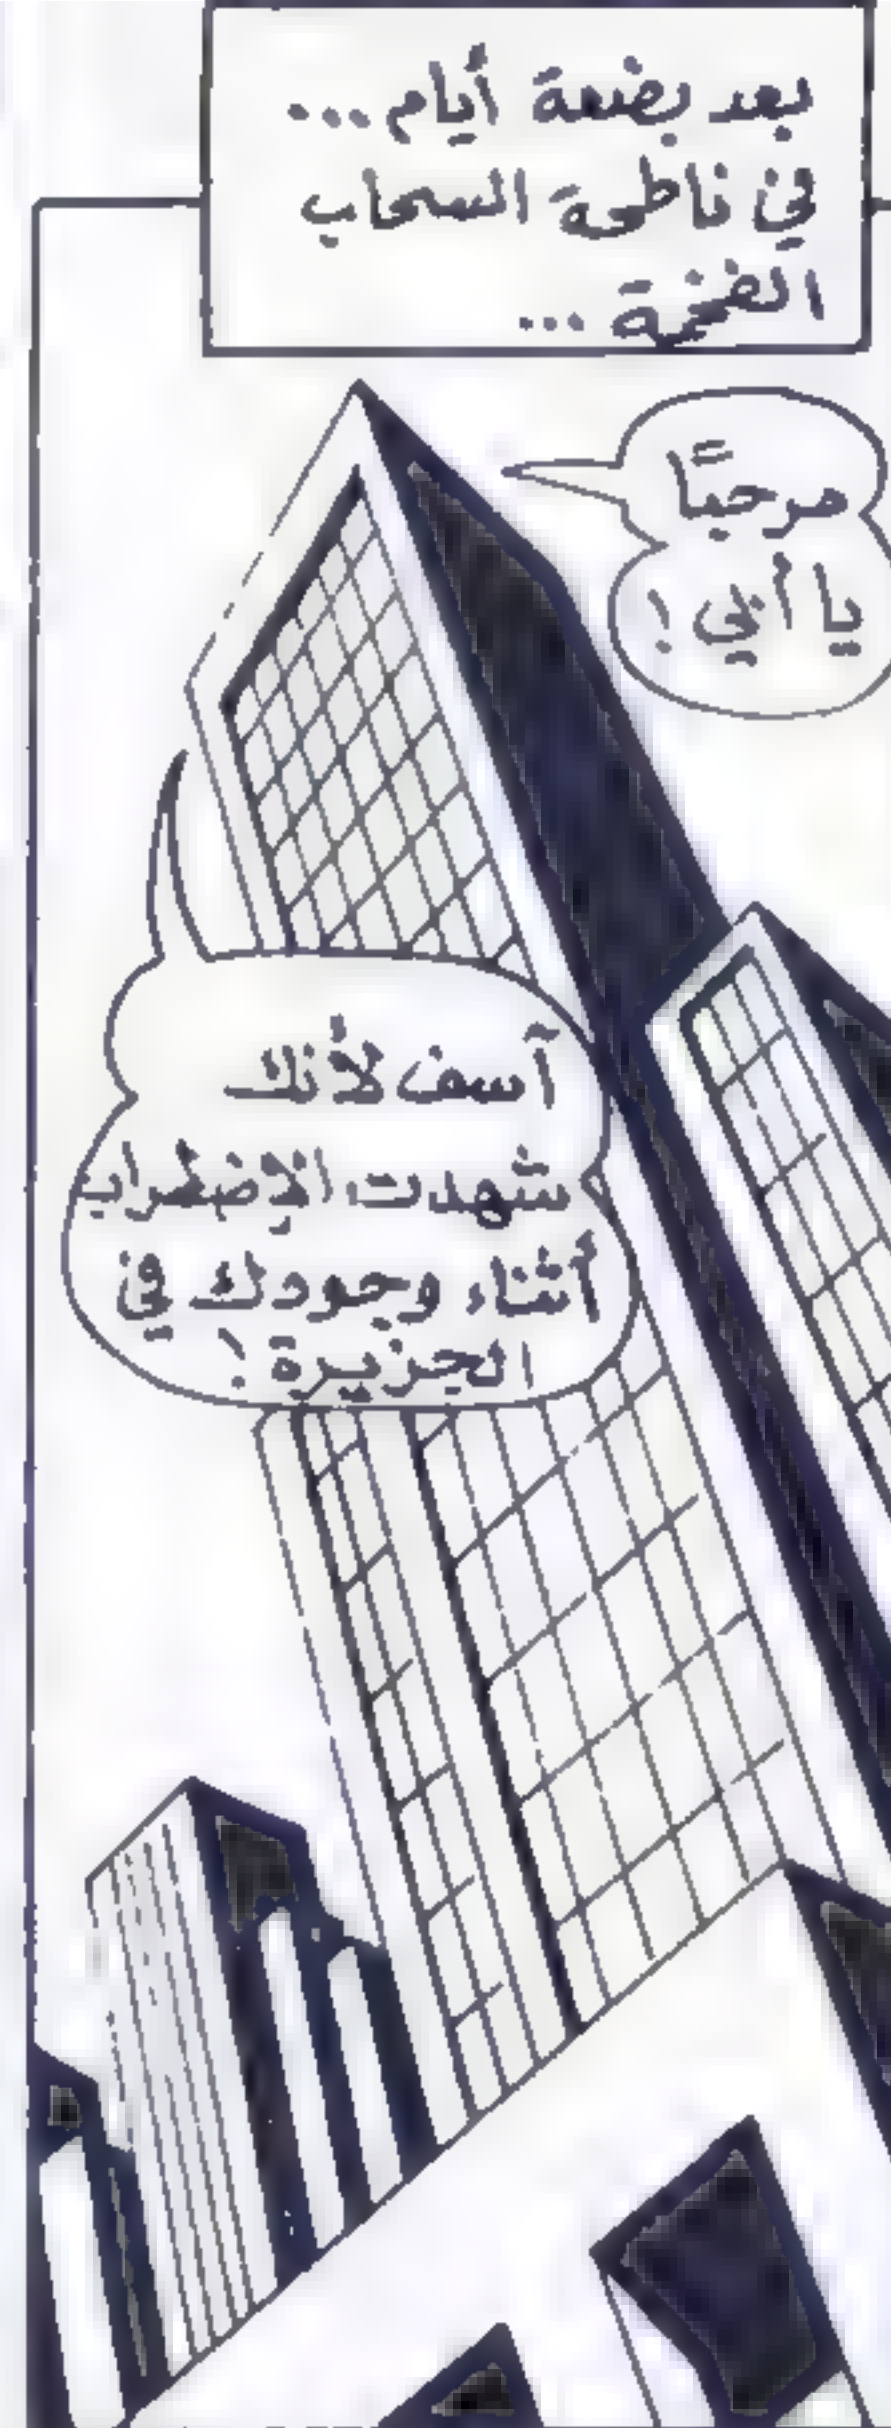 بعد بضعة أيام...
في ناطحة السحاب
الضخمة...
مرحبًا
يا أبي!
آسف لأنك
شهدت الإضطراب
أثناء وجودك في
الجزيرة!